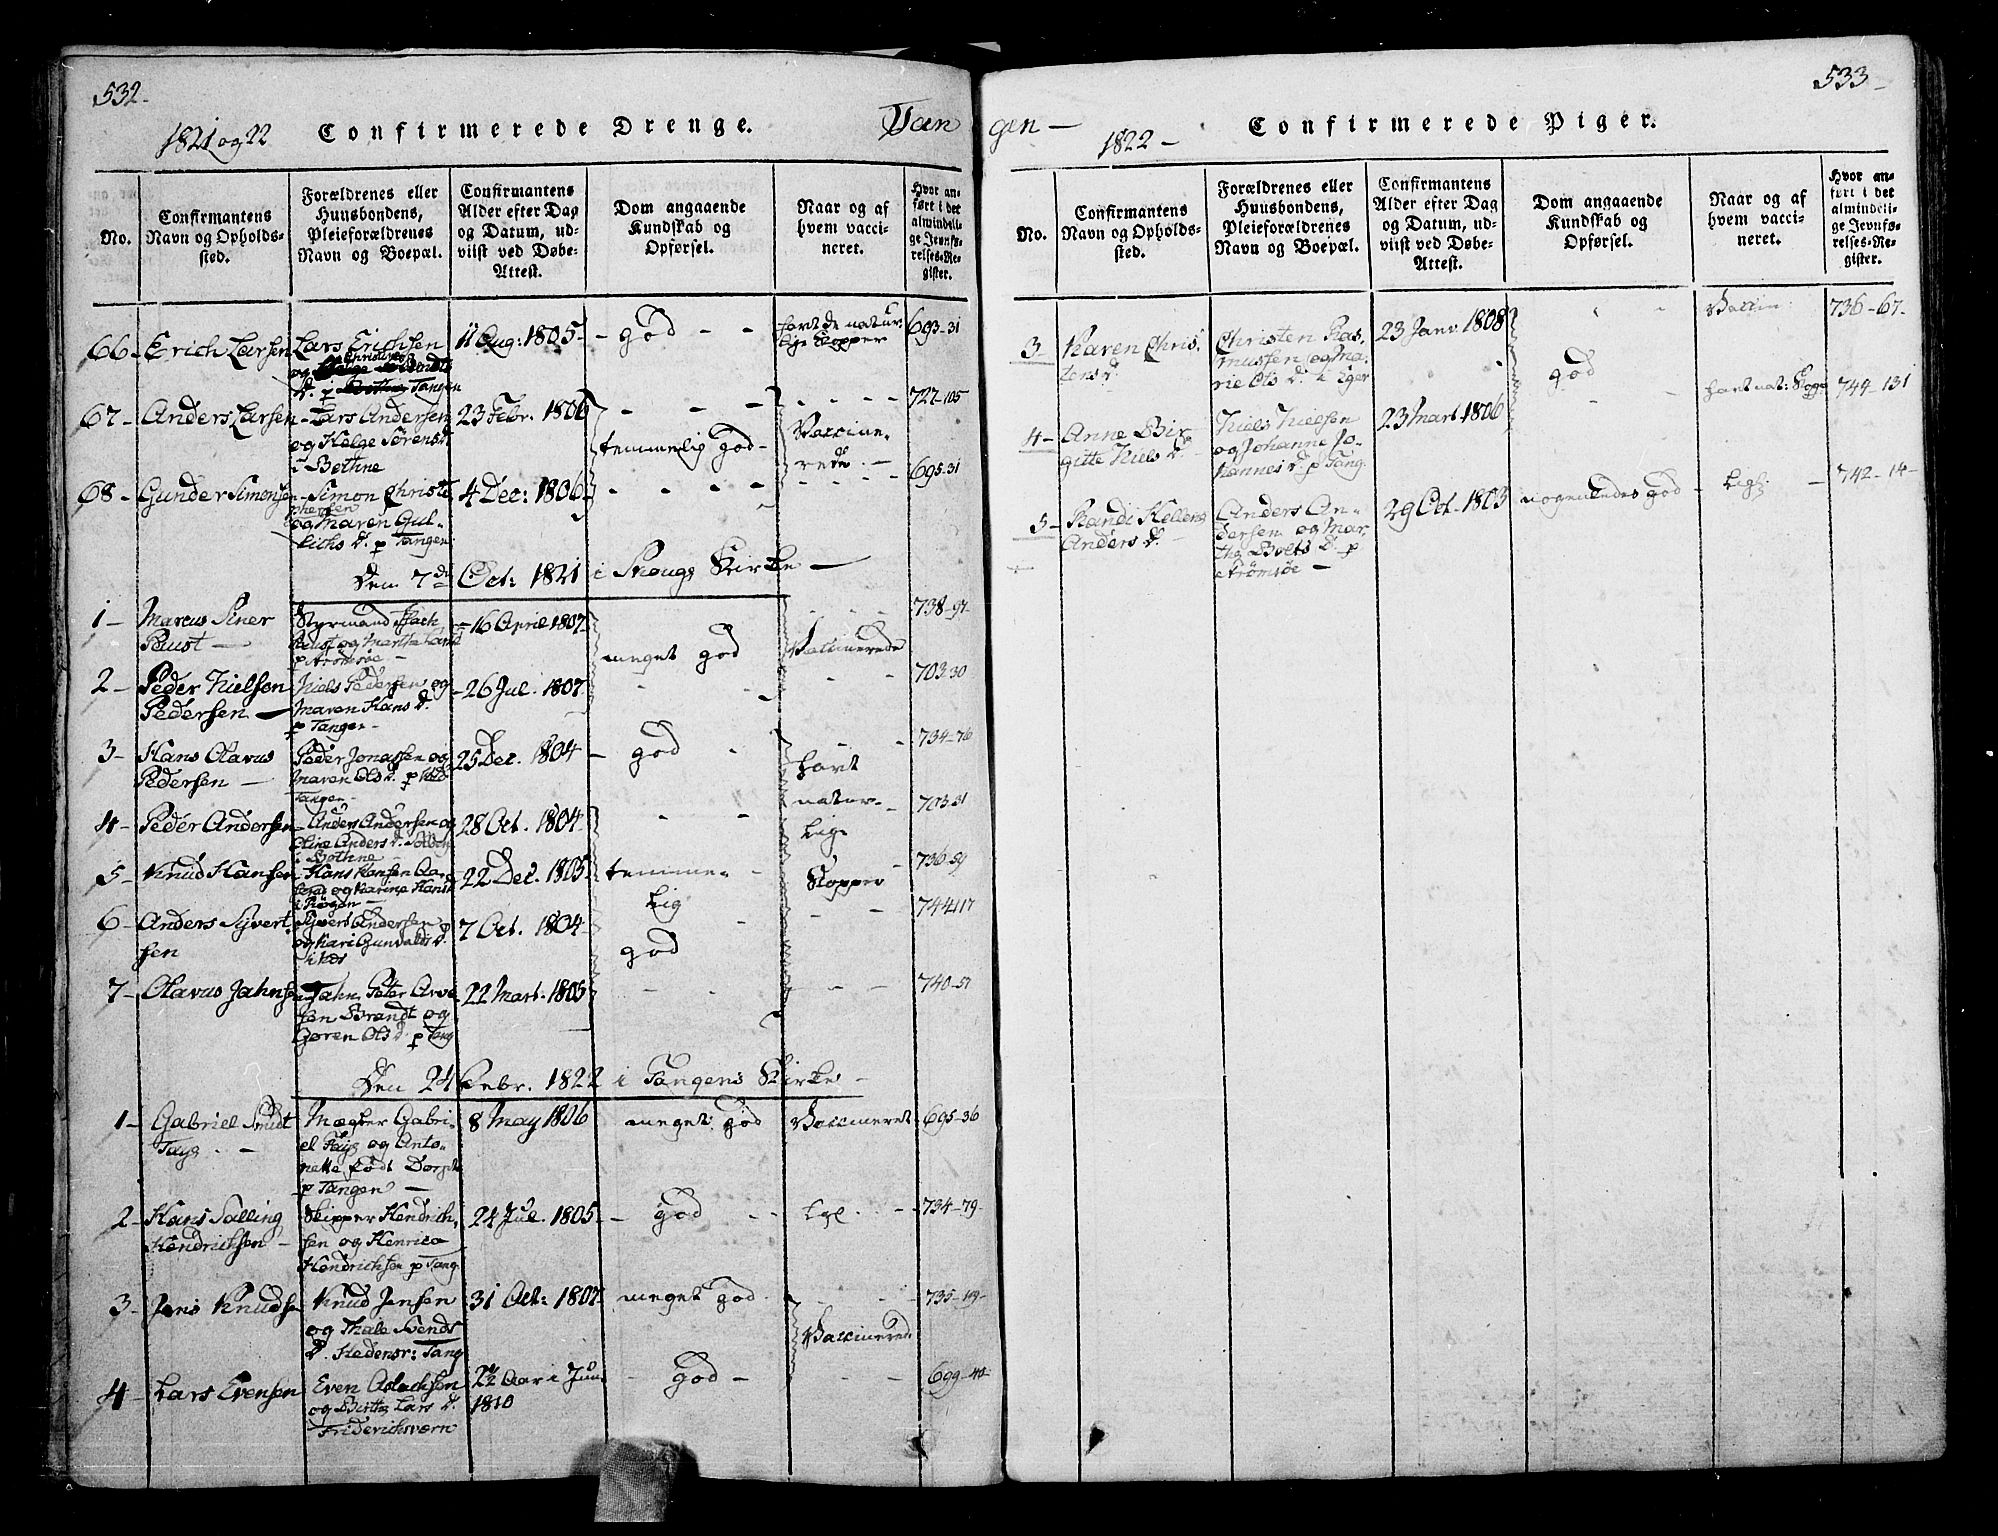 532.
1821 og 22 Confirmerede Drenge. Tan
No.
Confirmantens
Navn og Opholds-
sted.
Forældrenes eller
Huusbondens,
Pleieforældrenes
Navn og Boepæl.
Confirmantens
Alder efter Dag
og Datum, ud-
viist ved Døbe-
Attest.
Dom angaaende
Kundskab og
Opførsel.
Naar og af
hvem vacci-
neret.
Hvor an-
ført i det
almindeli-
ge Jevnfø-
relses-Re-
gister.
66 - Erich Larsen
Lars Erichsen
og
D. i Tangen
11 Aug: 1805
god
havt de natur-
lige Kopper
693-31
67 - Anders Larsen
Lars Andersen
og Helge Sørens D.
i Bothne
23 Febr. 1806
temmelig god
Vaccine-
rede
727-105
68 - Gunder Simonsen
Simon Christo
phersen
og Maren Gul-
lichs D. p Tangen
4 Dec: 1806
695-31
Den 7de Oct: 1821 i Skougs Kirke
1 - Marcus
Paust
Styrmand
Paust og Marthe
p Strømsøe
16 April 1807
meget god
Vaccinerede
738-97
2 - Peder Nielsen
Pedersen
Niels Pedersen og
Maren Hans D.
p Tangen
26 Jul. 1807
703-30
3 - Hans Olavus
Pedersen
Peder Jonassen og
Maren Ols D. p
Tangen
25 Dec. 1804
god
havt
natur-
lige
Kopper
734-76
4 - Peder Andersen
Anders Andersen og
Anders D.
i Bothne
28 Oct. 1804
703-31
5 - Knud Hansen
Hans Hansen
og Karine Hans D.
i Røgen
22 Dec. 1805
temme-
lig
god
736-59
6 - Anders Syvert
sen
Syvert Andersen
og Kari Gunvalds D.
7 Oct. 1804
744-117
7 - Olavus Jahnsen
Jahn Peter
sen Brandt og
Gøren Ols D. p Tang
22 Mart. 1805
740-57
Den 24 Febr. 1822 i Tangens Kirke
1 - Gabriel Smidt
Faye
Mægler Gabri-
el Faye og Anto-
nette født
p Tangen
8 May 1806
meget god
Vaccineret
695-36
2 - Hans Salling
Hendrichsen
Skipper Hendrich
sen og Henrica
Hendrichsen p Tang
24 Jul. 1805
god
Lgl.
734-79
3 - Jens Knudsen
Knud Jensen
og Thale Svends
D. Tang
31 Oct: 1807
meget god
Vaccinered
735-
4 - Lars Evensen
Even Aslachsen
og Berthe Lars D.
Friderichsværn
Aar i Juni
1810
god
699-40
533
gen - 1822 - Confirmerede Piger.
No.
Confirmantens
Navn og Opholds-
sted.
Forældrenes eller
Huusbondens,
Pleieforældrenes
Navn og Boepæl.
Confirmantens
Alder efter Dag
og Datum, ud-
viist ved Døbe-
Attest.
Dom angaaende
Kundskab og
Opførsel.
Naar og af
hvem vacci-
neret.
Hvor an-
ført i det
almindeli-
ge Jevnfø-
relses-Re-
gister.
3 - Karen Chris-
tens D.
Christen Ras-
mussen og Ma-
rie Ols D. i Eger
23 Janv. 1808
god
Vaccin:
736-67
4 - Anne Bir-
gitte Niels D.
Niels Nielsen
og Johanne Jo-
hannes D. p Tang.
23 Mart 1806
havt nat: Kopp.
749-131
5 - Randi Hellene
Anders D.
Anders An-
dersen og Mar-
the D. p
Strømsøe
29 Oct. 1803
nogenledes god
Legl:
742-14